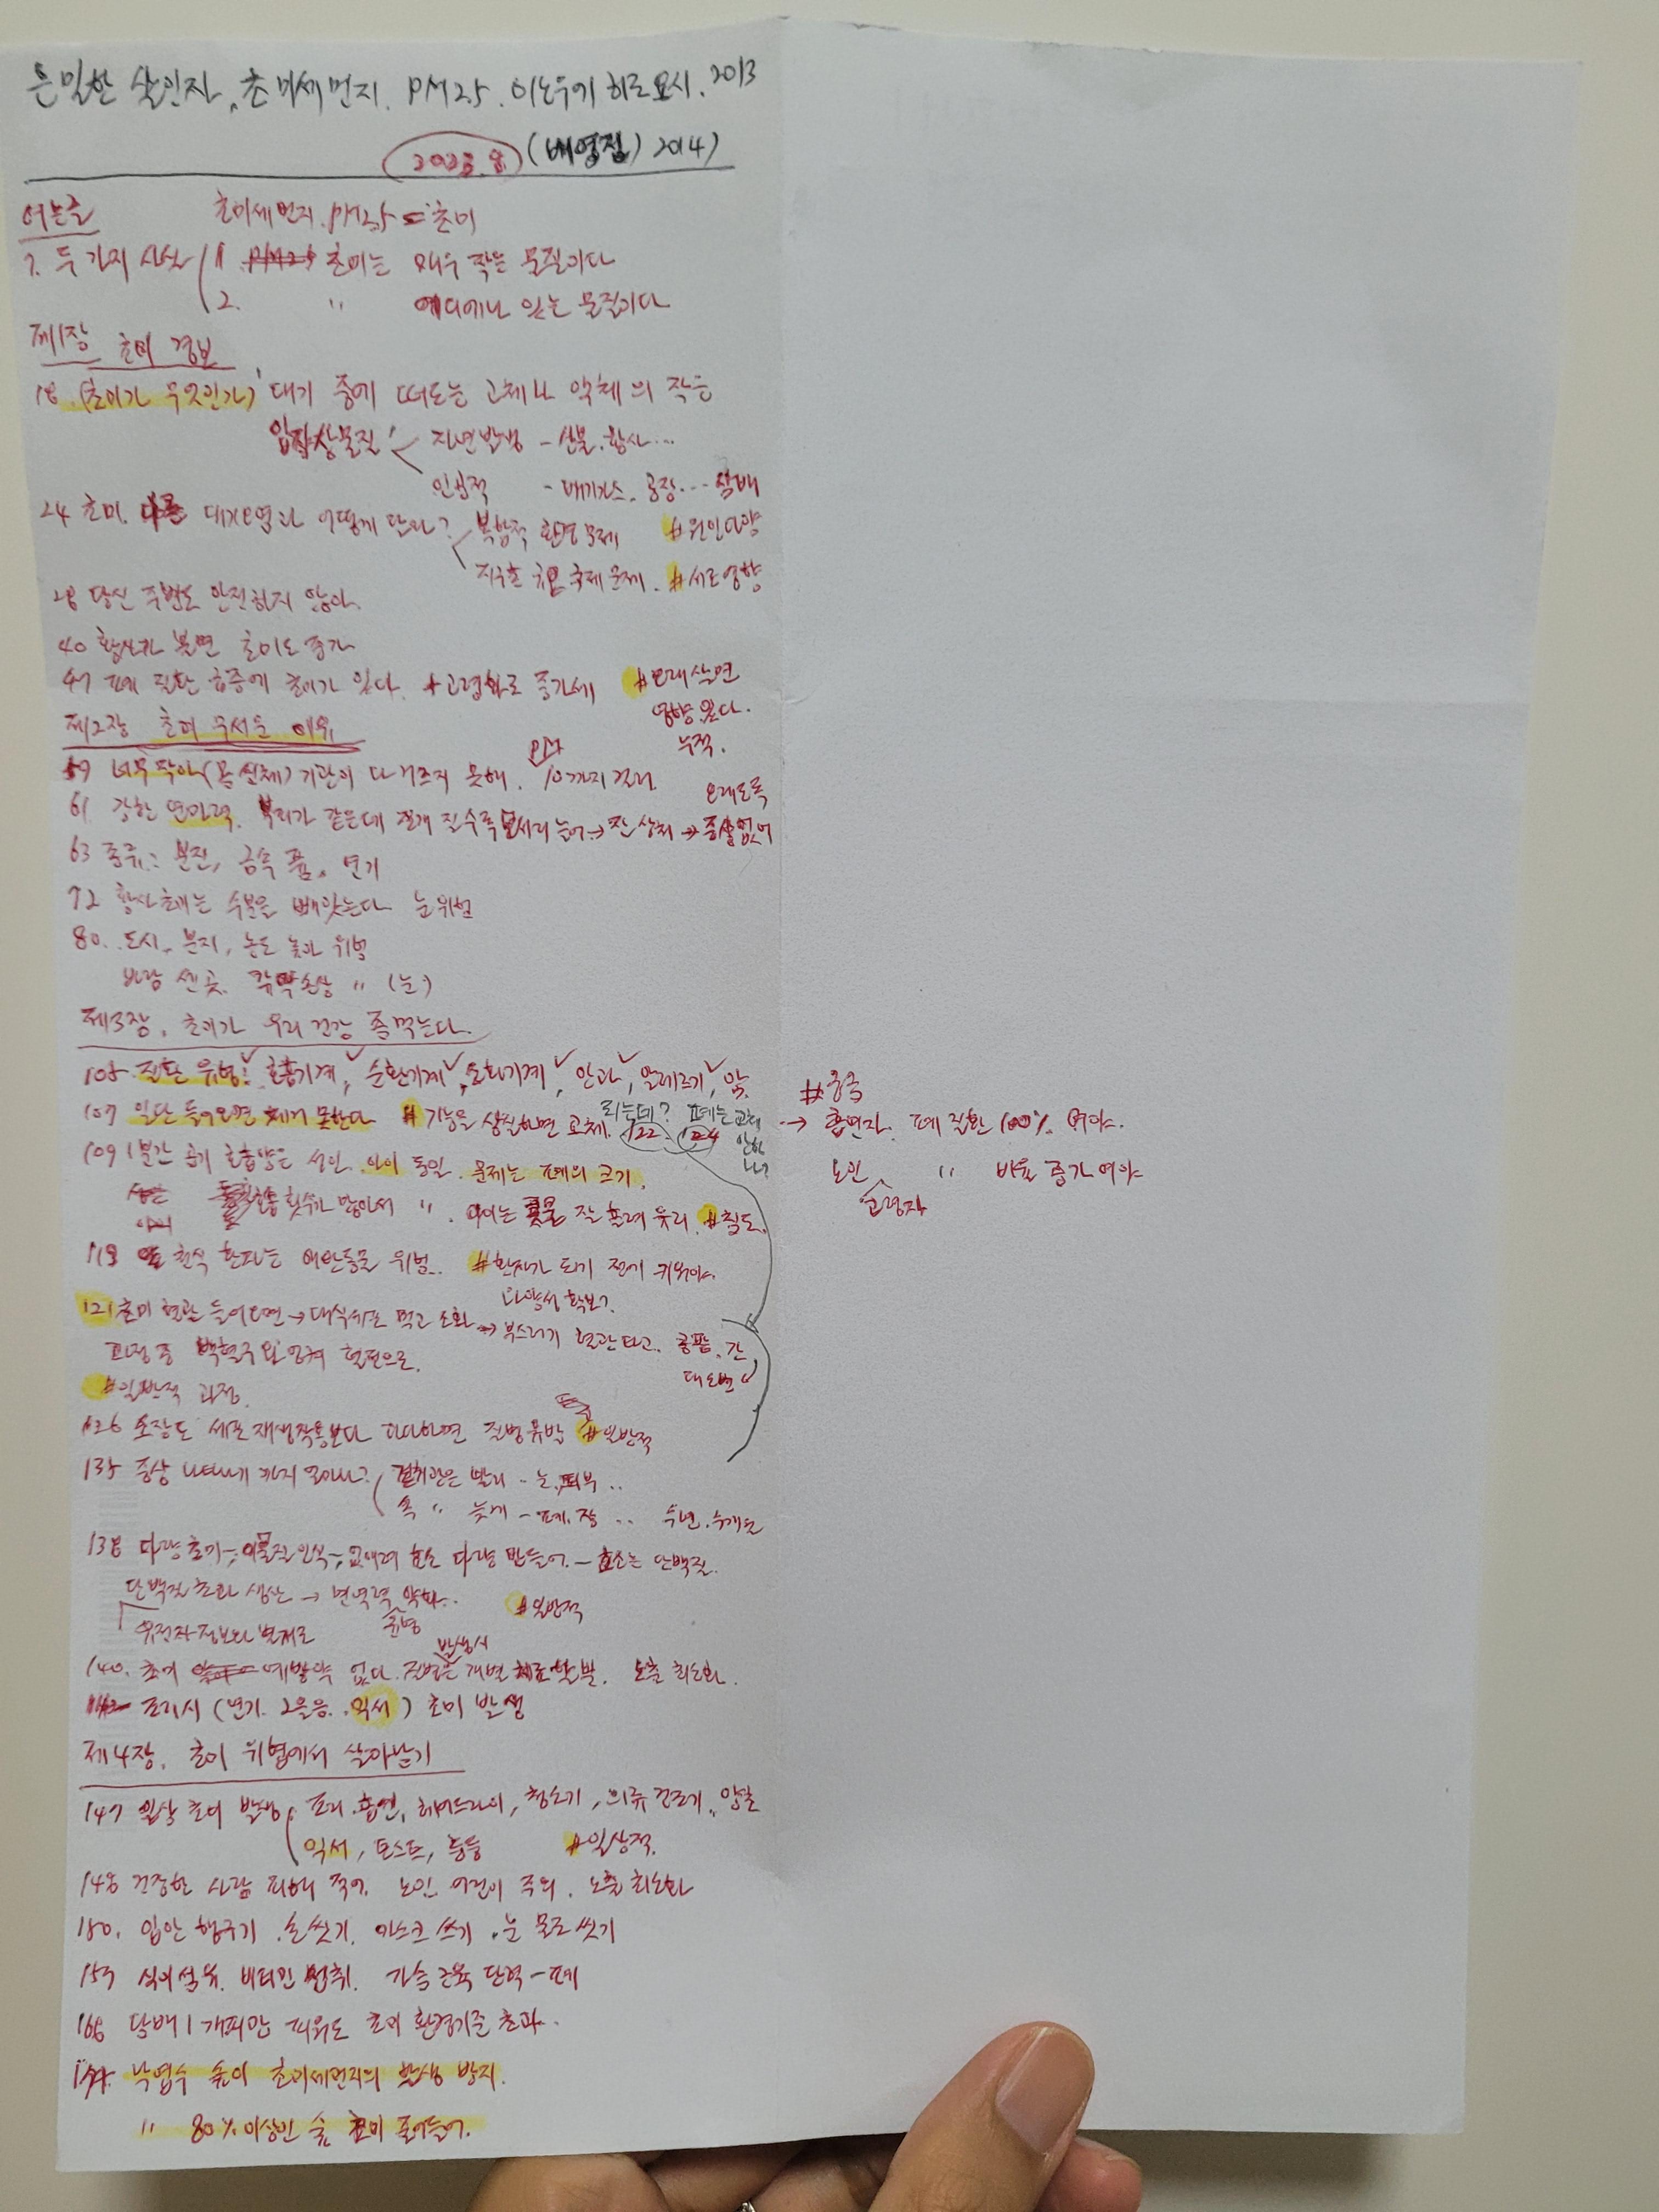 은밀한 살인자, 초미세먼지. PM2.5. 이노우에 히로요시. 2013
2023.8 (배영진) 2014)
여는글 초미세먼지. PM2.5 = 초미
7. 두 가지 사실 1. 초미는 매우 작은 물질이다
2. 〃 어디에나 있는 물질이다
제1장 초미 경보
18. (초미가 무엇인가) 대기 중에 떠도는 고체나 액체의 작은
입자상물질 자연발생 - 산불. 황사...
인위적 - 배기가스. 공장... 담배
24 초미. 다른 대기오염과 어떻게 달라? 복합적 환경문제 #원인다양
지구촌 국제문제. #서로영향
28 당신 주변도 안전하지 않아.
40 황사가 불면 초미도 증가
47 폐 질환 급증에 초미가 있다. +고령화로 증가세 #오래살면
영향 있다.
누적.
제2장 초미 무서운 이유
59 너무 작아 (몸 신체) 기관이 다 거르지 못해. PM 10까지 걸러.
61 강한 연마력. 부피가 같은데 잘게 질수록 모서리 늘어→잔 상처→증상없어 오래도록
63 종류: 분진, 금속 품. 연기
72 황사 초미는 수분을 빼앗는다 눈 위험
80. 도시. 분지, 농도 높아 위험
바람 센 곳. 각막손상 〃 (눈)
제3장. 초미가 우리 건강 좀먹는다.
105 질환 유형: 호흡기계, 순환기계, 소화기계, 안과, 알레르기, 암.
107 일단 들어오면 제거 못한다 # 기능을 상실하면 교체. 되는데? 폐는 교체 안하나? 122. 124
#중국
→ 흡연자. 폐 질환 100% 여야.
노인 〃 비율 증가 여야
고령자
109 1분간 공기 호흡량은 성인. 아이 동일. 문제는 폐의 크기.
횟수가 많아서 〃. 아이는 콧물 잘 흘려 유리. #침도.
119 천식 환자는 애완동물 위험. #환자가 되기 전에 키워야.
다양성 확보?
121 초미 혈관 들어오면→대식세포 먹고 소화→부스러기 혈관 타고. 콩팥. 간.
과정 중 백혈구와 엉켜 혈전으로. 대소변
#일반적 과정.
126 오장도 세포 재생작용보다 과다하면 질병유발 #일반적
135 증상 나타나기 까지 얼마나? 겉기관은 빨리 - 눈, 피부..
속 〃 늦게 - 폐. 장.. 수년. 수개월
138 다량초미→이물질 인식→없애려 효소 다량 만들어. - 효소는 단백질.
단백질 초과 생산 → 면역력 약화. #일반적
유전자 정보의 번개로
140. 초미 예방약 없다. 질병은 발생시 개별 치료할 뿐. 노출 최소화.
조리시 (연기. 그을음. 믹서) 초미 발생
제4장. 초미 위협에서 살아남기
147 일상 초미 발생 조리. 흡연, 헤어드라이, 청소기, 의류 건조기, 양초
믹서, 토스트, 등등 #일상적.
148 건강한 사람 피해 적어. 노인. 어린이 주의. 노출 최소화
150. 입안 헹구기. 손씻기. 마스크 쓰기. 눈 물로 씻기
157 식이섬유. 비타민 섭취. 가슴근육 단력 - 폐
168 담배 1개피만 피워도 초미 환경기준 초과.
낙엽수 숲이 초미세먼지의 발생 방지.
〃 80% 이상인 숲 초미 줄어들어.